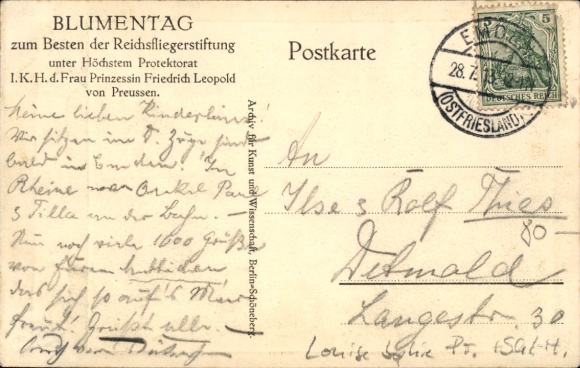 BLUMENTAG
zum Besten der Reichsfliegerstiftung
unter Höchstem Protektorat
I.K.H. d. Frau Prinzessin Friedrich Leopold
von Preussen.
Postkarte
EMDEN
28.7.13
(OSTFRIESLAND)
5
DEUTSCHES REICH
Meine lieben Kinderlein!
Wir sitzen im D. Zuge sind
bald in Emden. In
Rheine war Onkel Paul
& Tilla an der Bahn. –
Nun noch viele 1000 Grüße
von
das sich so auf's Meer
freut! Grüßt alle.
Archiv für Kunst und Wissenschaft, Berlin-Schöneberg.
An
Ilse & Rolf
80–
Detmold
Langestr. 30
Louise Sophie Pr.